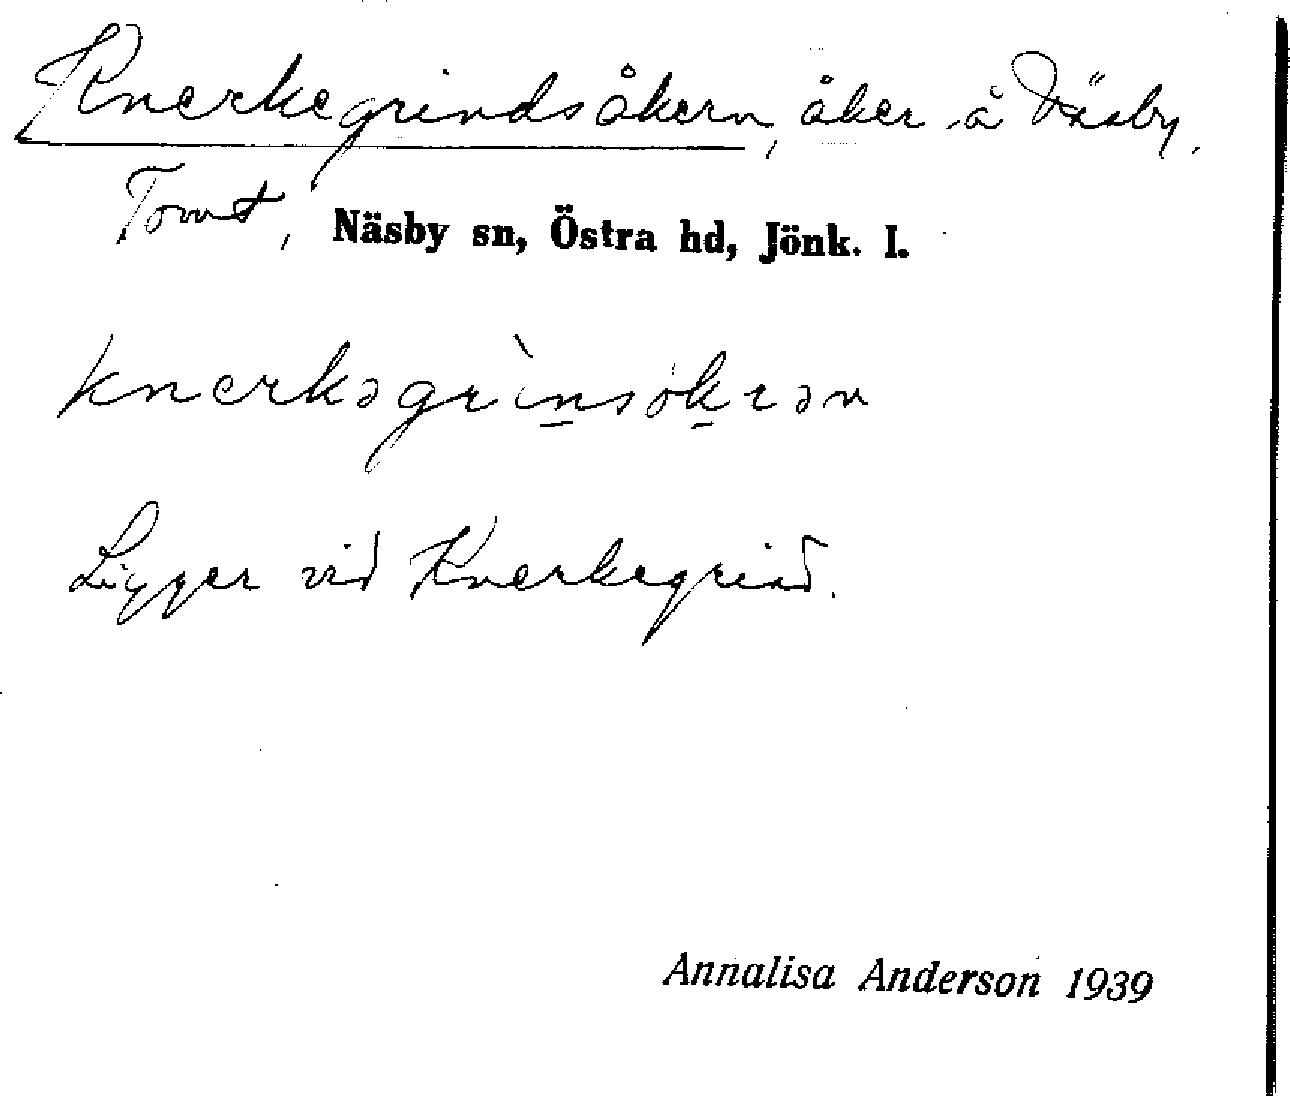 Knerkegrindsåkern, åker å Väsby.
Tomt, Näsby sn, Östra hd, Jönk. l.
knerkəgrìnsokrən
Ligger vid Knerkegrind.
Annalisa Anderson 1939